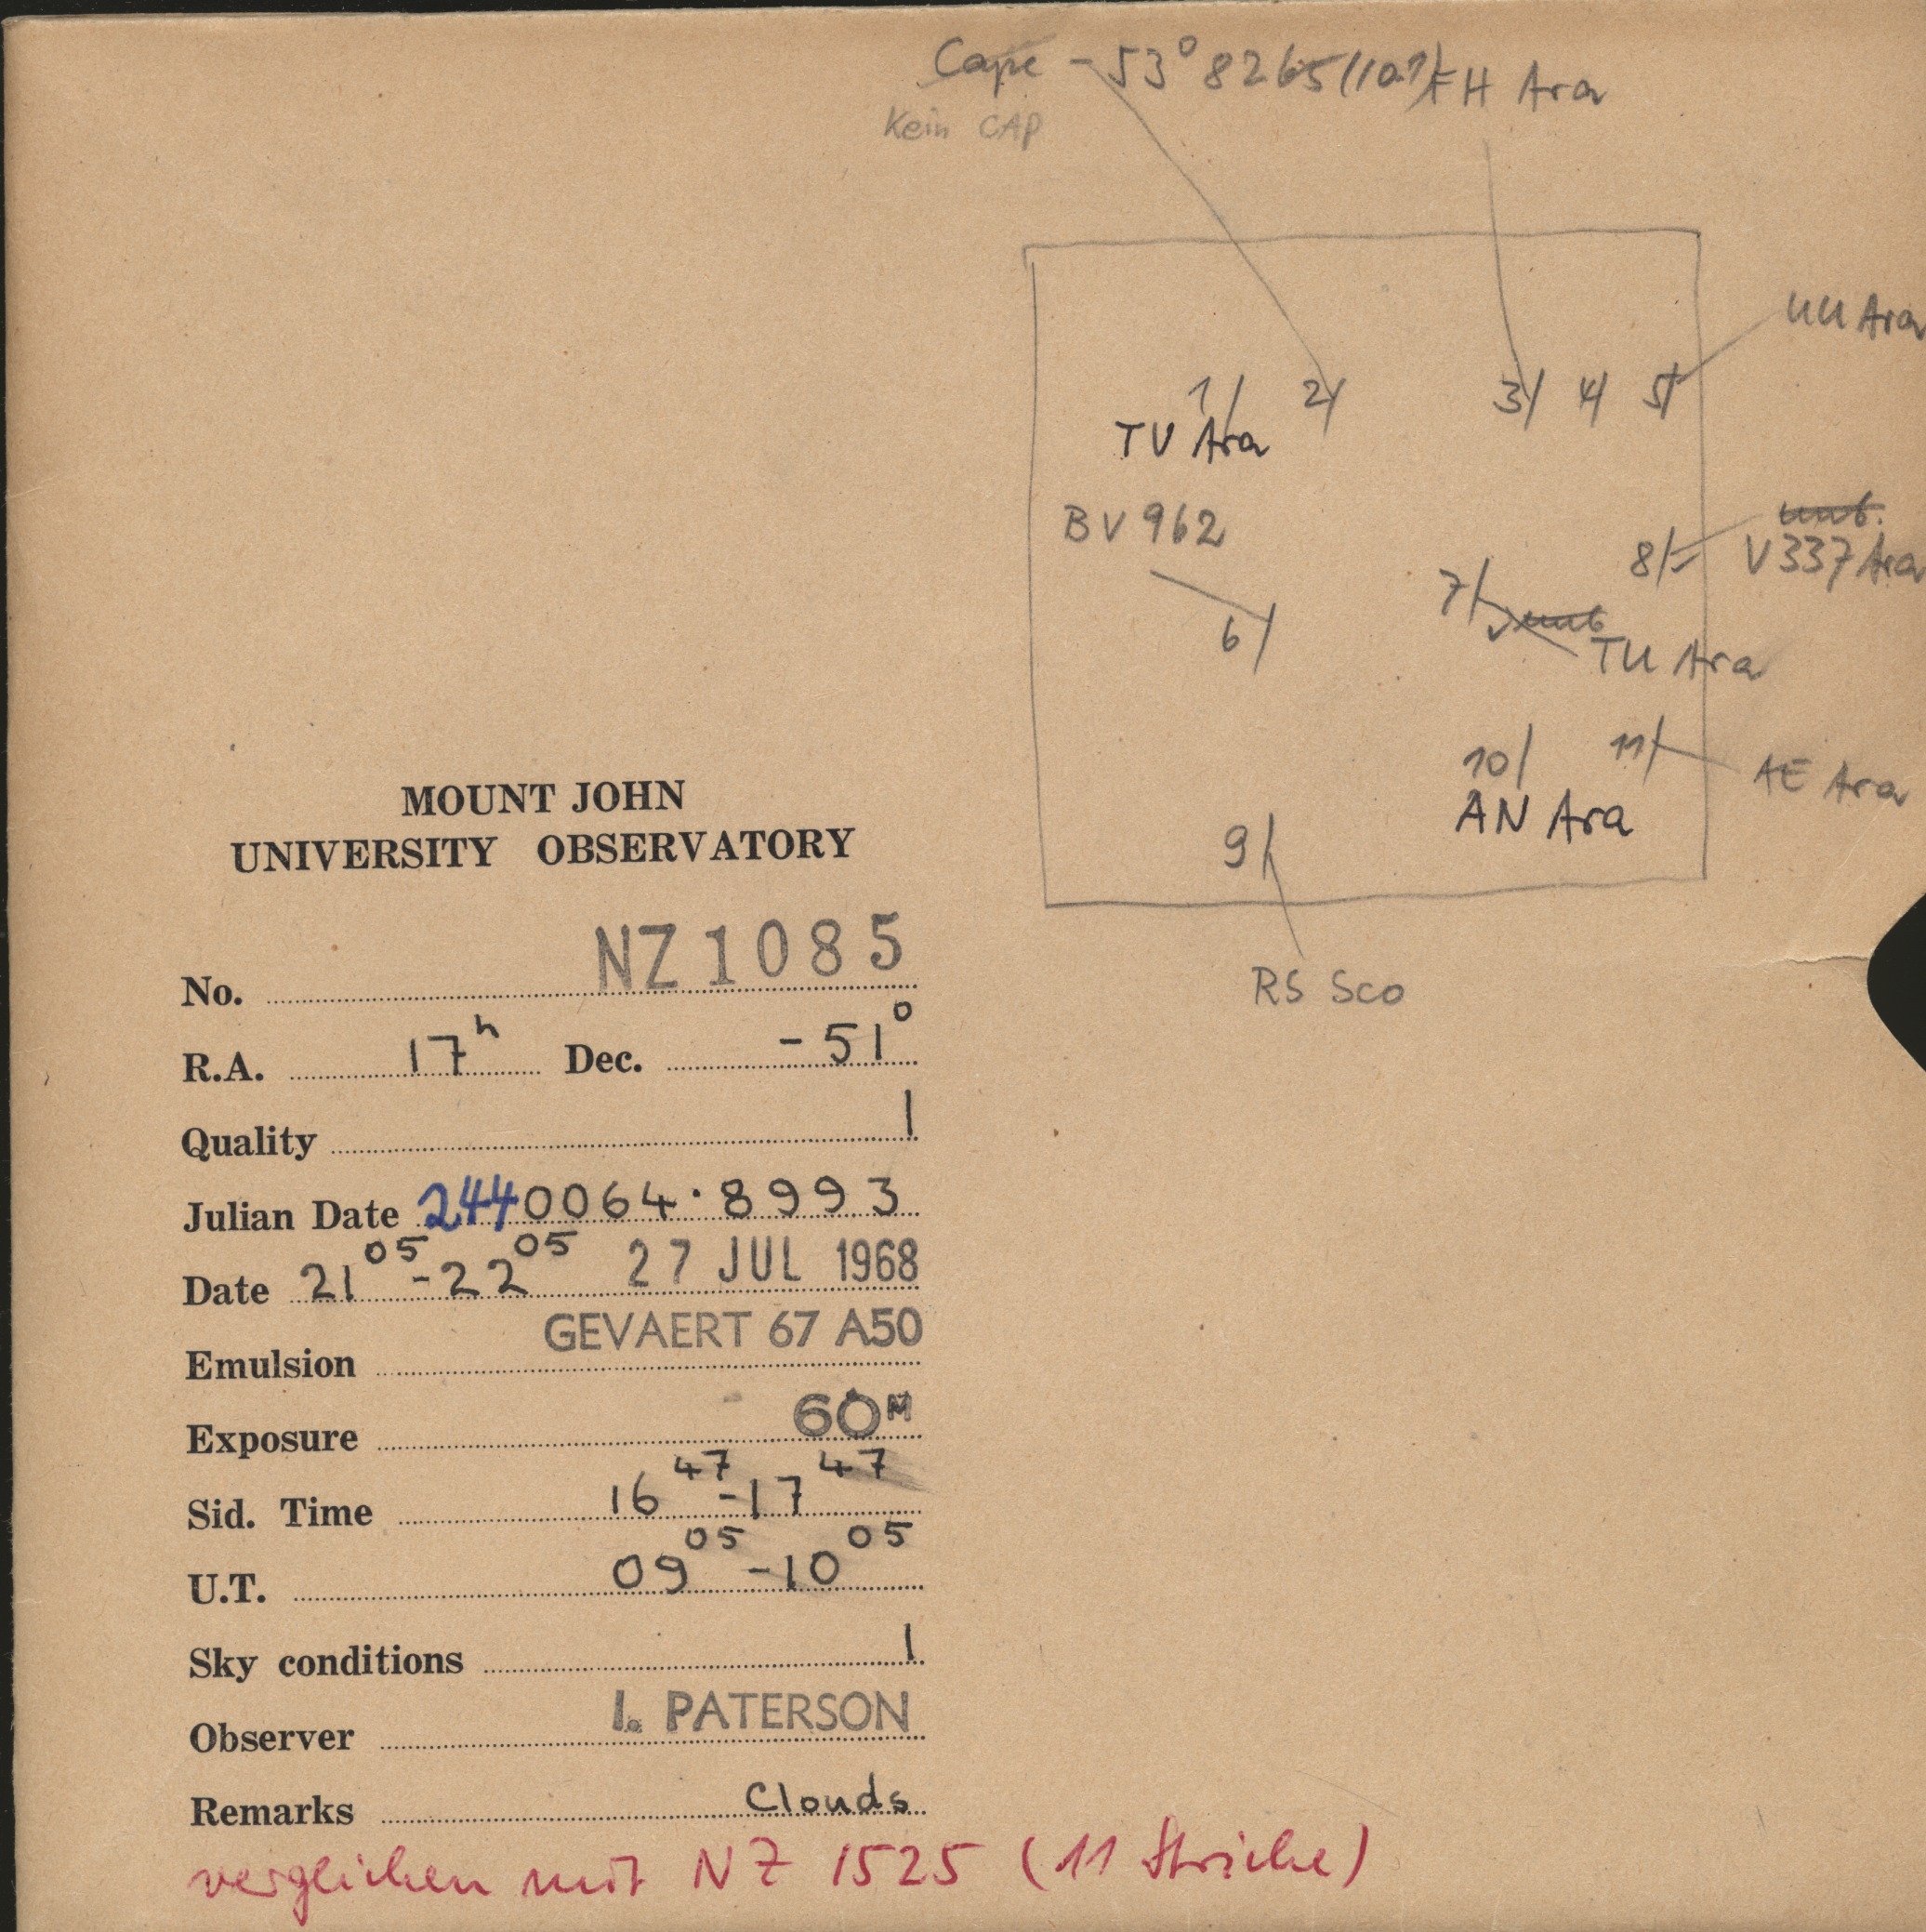 Cape -53° 8265 (10.1) FH Ara
Kein CAP
UU Ara
1 2 3 4 5
TV Ara
BV 962
unb.
8 V337 Ara
7 unb
6 TU Ara
10 11 AE Ara
AN Ara
9
RS Sco
MOUNT JOHN
UNIVERSITY OBSERVATORY
No. NZ 1085
R.A. 17h Dec. -51°
Quality 1
Julian Date 2440064.8993
Date 21 05 - 22 05 27 JUL 1968
Emulsion GEVAERT 67 A50
Exposure 60M
Sid. Time 16 47 - 17 47
U.T. 09 05 - 10 05
Sky conditions 1
Observer I. PATERSON
Remarks Clouds
verglichen mit NZ 1525 (11 Striche)